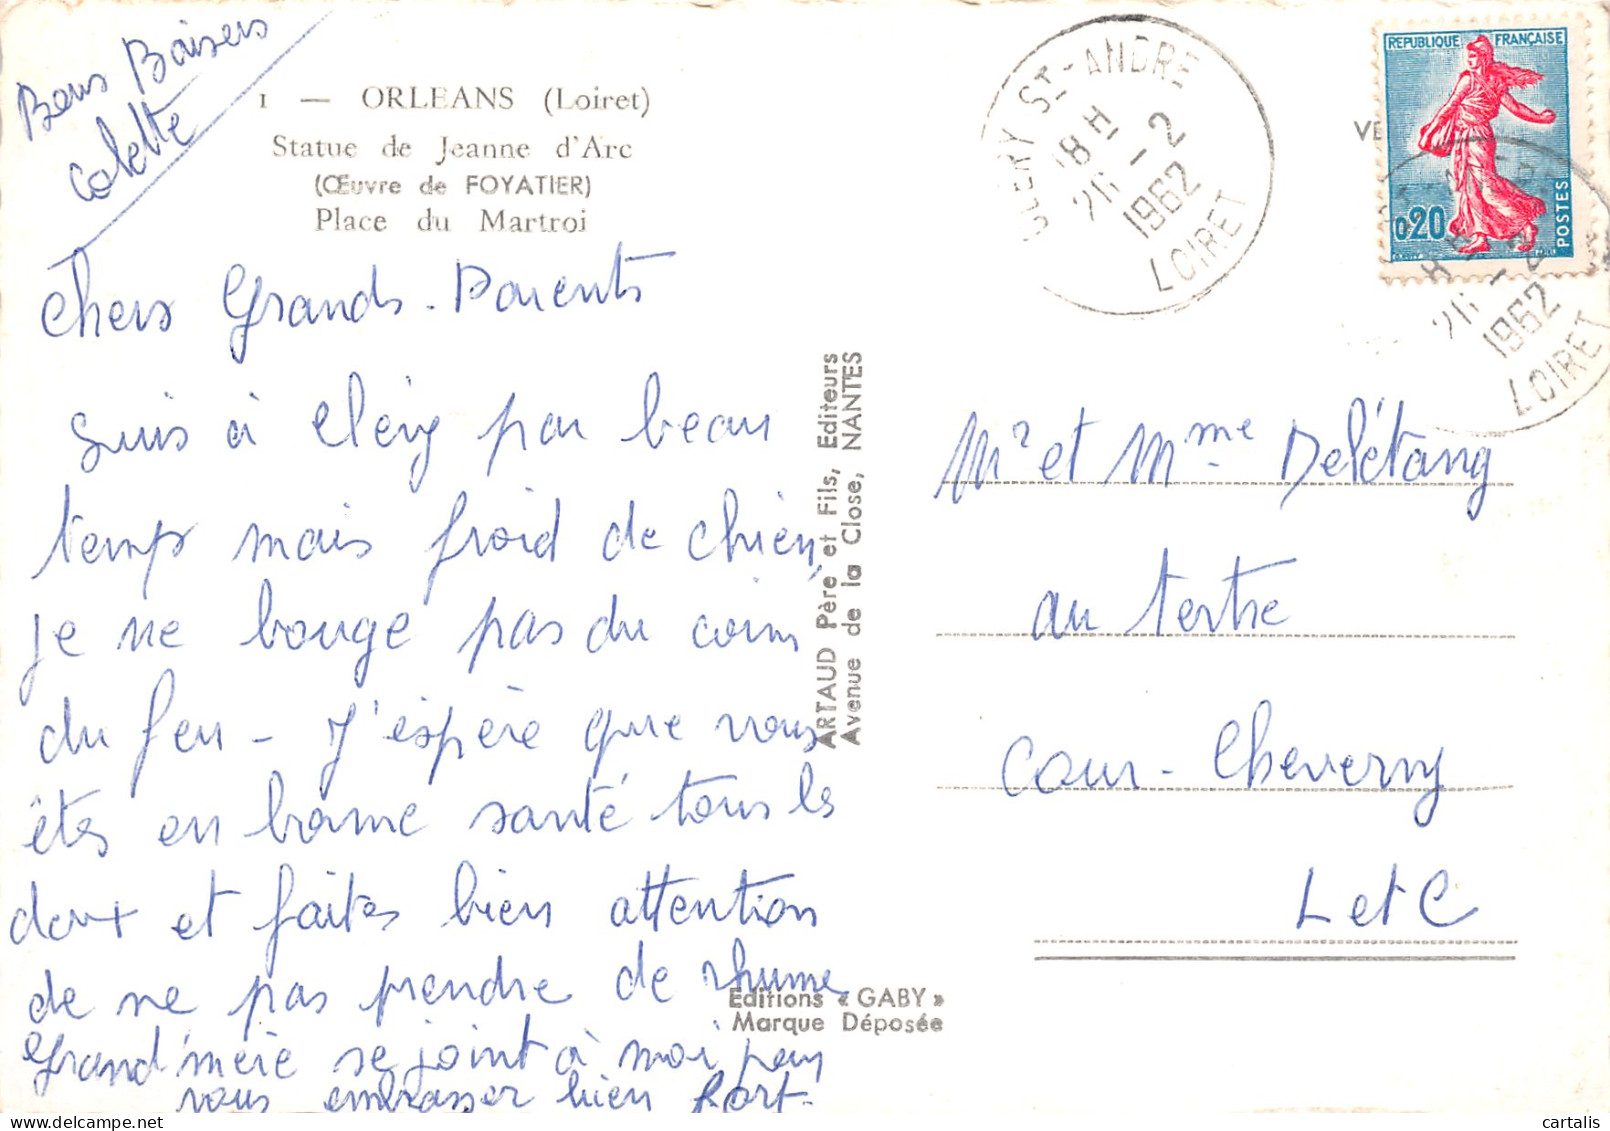 Bons Baisers
Colette
1 — ORLEANS (Loiret)
Statue de Jeanne d'Arc
(Œuvre de FOYATIER)
Place du Martroi
Chers Grands-Parents
Suis à Cléry par beau
temps mais froid de chien,
je ne bouge pas du coin
du feu - J'espère que vous
êtes en bonne santé tous les
deux et faites bien attention
de ne pas prendre de rhume
Grand'mère se joint à moi pour
vous embrasser bien fort.
ARTAUD Père et Fils, Editeurs
Avenue de la Close, NANTES
Editions « GABY »
Marque Déposée
CLERY ST-ANDRE
18 H
26 - 2
1962
LOIRET
REPUBLIQUE FRANÇAISE
0,20
POSTES
26 - 2
1962
LOIRET
Mr et Mme Delétang
au tertre
Cour-Cheverny
L et C
cartalis